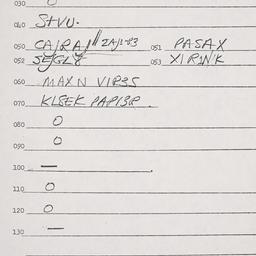 030 O
040 STVU.
050 CAJRAJ // ZAJ1-83 051 PASAX
052 SEJGLY 053 XIRINK
060 MAXN VIRES
070 KLSEK PAPIBR.
080 O
090 O
100 —
110 O
120 O
130 —